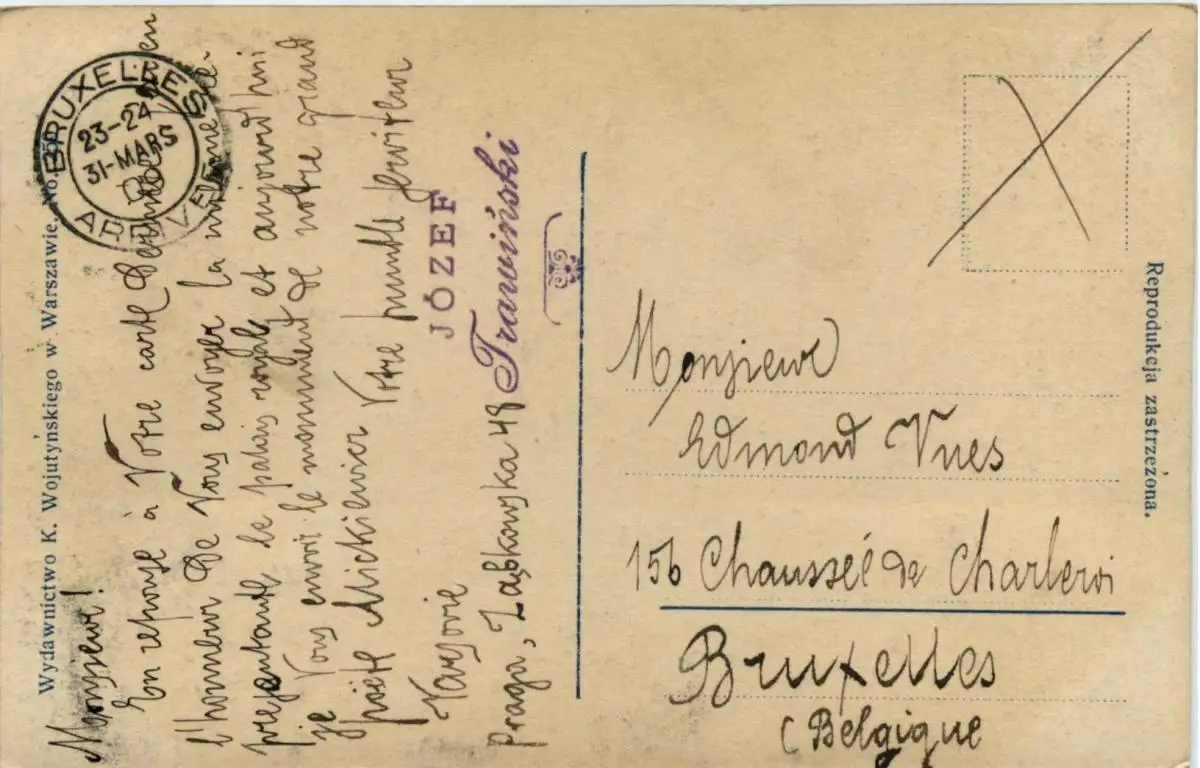 Wydawnictwo K. Wojutyńskiego w Warszawie. No.
BRUXELLES
23-24
31-MARS
Monsieur!
En reponse à Votre carte j'en
l'honneur de Vous envoyer la
presentante le palais royale et aujourd'hui
je Vous envoi le monument de notre grand
poète Mickiewicz Votre humble serviteur
JÓZEF
Trawiński
Varsovie
Praga, Ząbkowska 48
Monsieur
Edmond Vues
156 Chausseé de Charleroi
Bruxelles
(Belgique
Reprodukcja zastrzeżona.